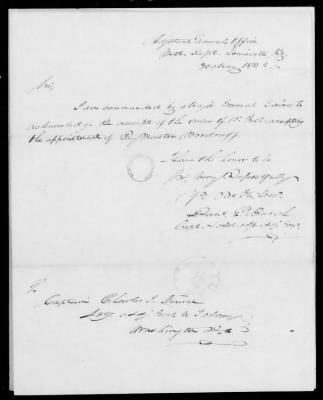 Adjutant Generals Office
West. Dept. Louisville, Ky.
30 May 183
Sir,
I am commanded by Major General Gaines to
acknowledge the receipt of the order of 15. Inst. accepting
the appointment of Pay Master
I have the honor to be
Sir, Very Respectfully
Yr. Ob. St.
Asst. Adj. Gen.
To
Captain Charles J. Nourse
Actg. Adj. Genl. U. S. Army
Washington D. C.